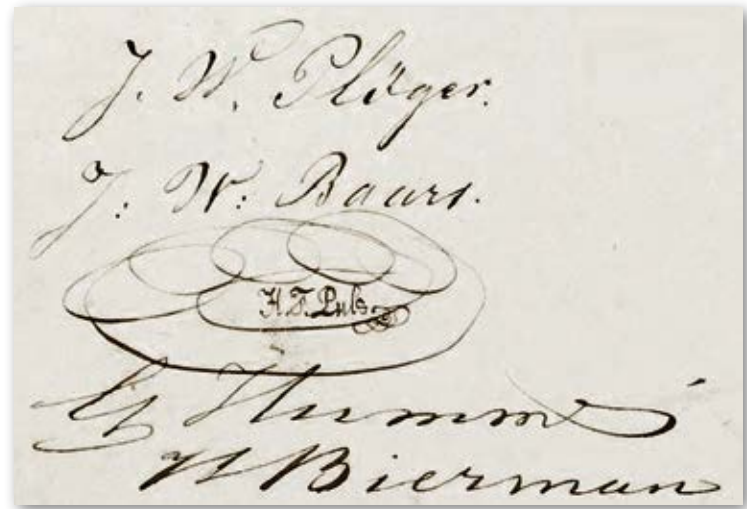 J. W. Plöger.
J. W. Baars.
H. F. Puls
G Hummel
H Bierman